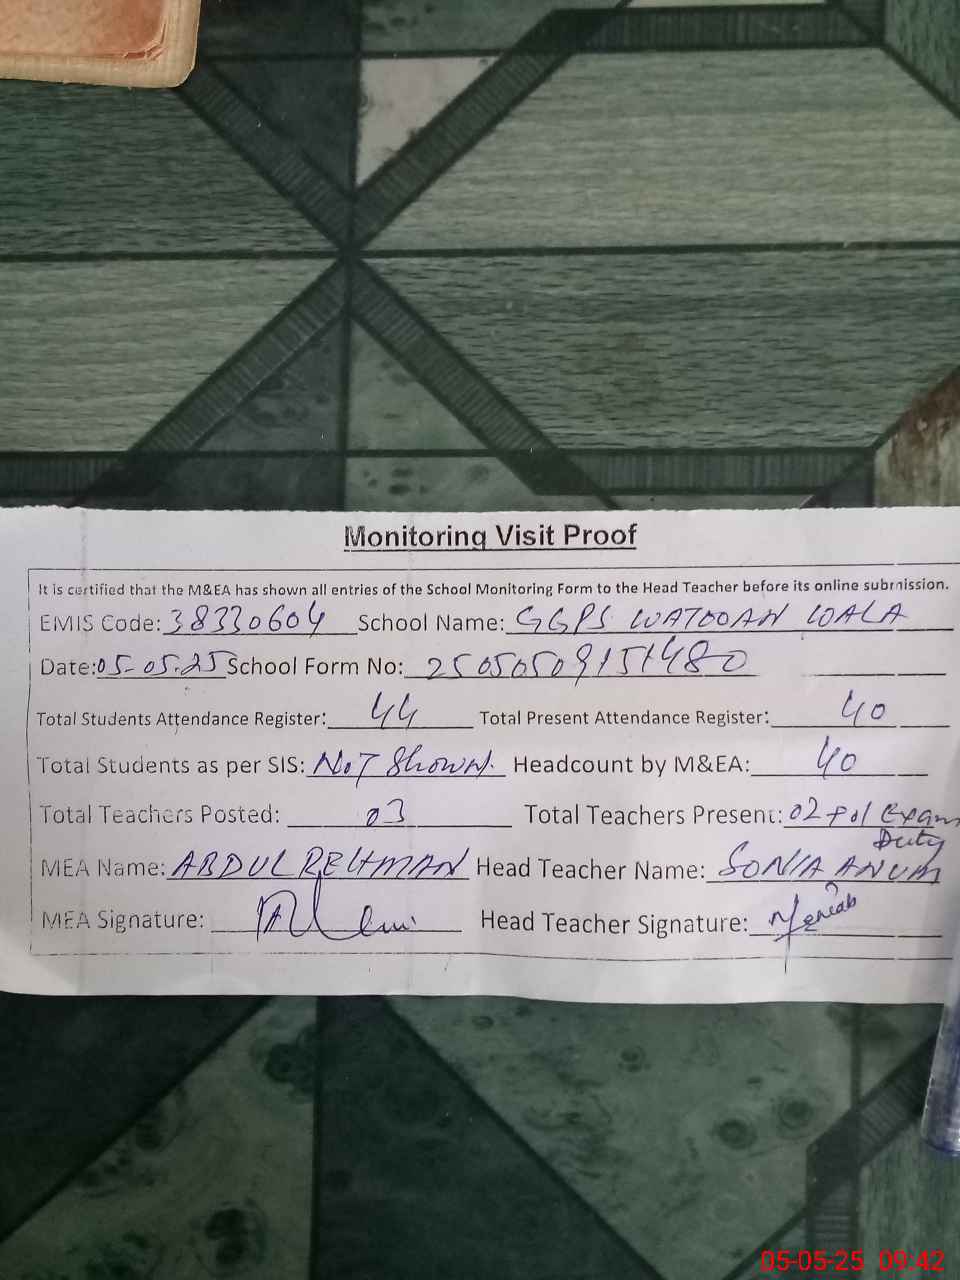 Monitoring Visit Proof
It is certified that the M&EA has shown all entries of the School Monitoring Form to the Head Teacher before its online submission.
EMIS Code: 38330604 School Name: GGPS WATOOAN WALA
Date: 05-05-25 School Form No: 25050509151480
Total Students Attendance Register: 44 Total Present Attendance Register: 40
Total Students as per SIS: Not Shown. Headcount by M&EA: 40
Total Teachers Posted: 03 Total Teachers Present: 02 + 01 Exam
Duty
MEA Name: ABDUL REHMAN Head Teacher Name: SONIA ANUM
MEA Signature: Head Teacher Signature:
05-05-25 09:42